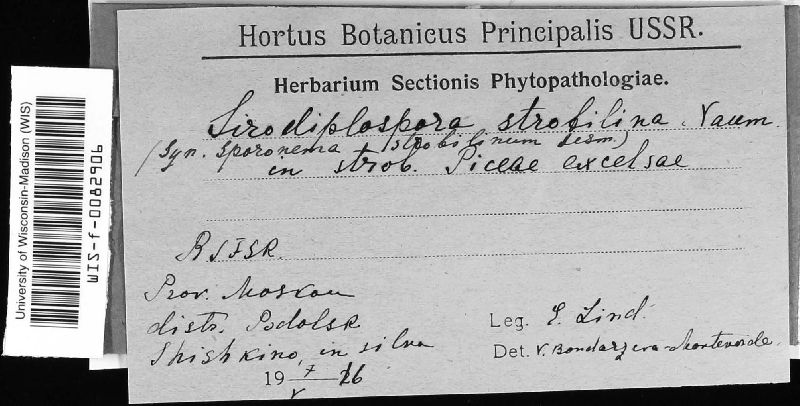 Hortus Botanicus Principalis USSR.
Herbarium Sectionis Phytopathologiae.
Sirodiplospora strobilina. Naum.
(Syn. Sporonema strobilinum Desm.)
in strob. Piceae excelsae
RSFSR.
Prov. Moskou
distr. Podolsk
Shishkino, in silva
19 7/V 26
Leg. E. Lind.
Det. V. Bondarzeva-Monteverde.
University of Wisconsin-Madison (WIS)
WIS-f-0082906